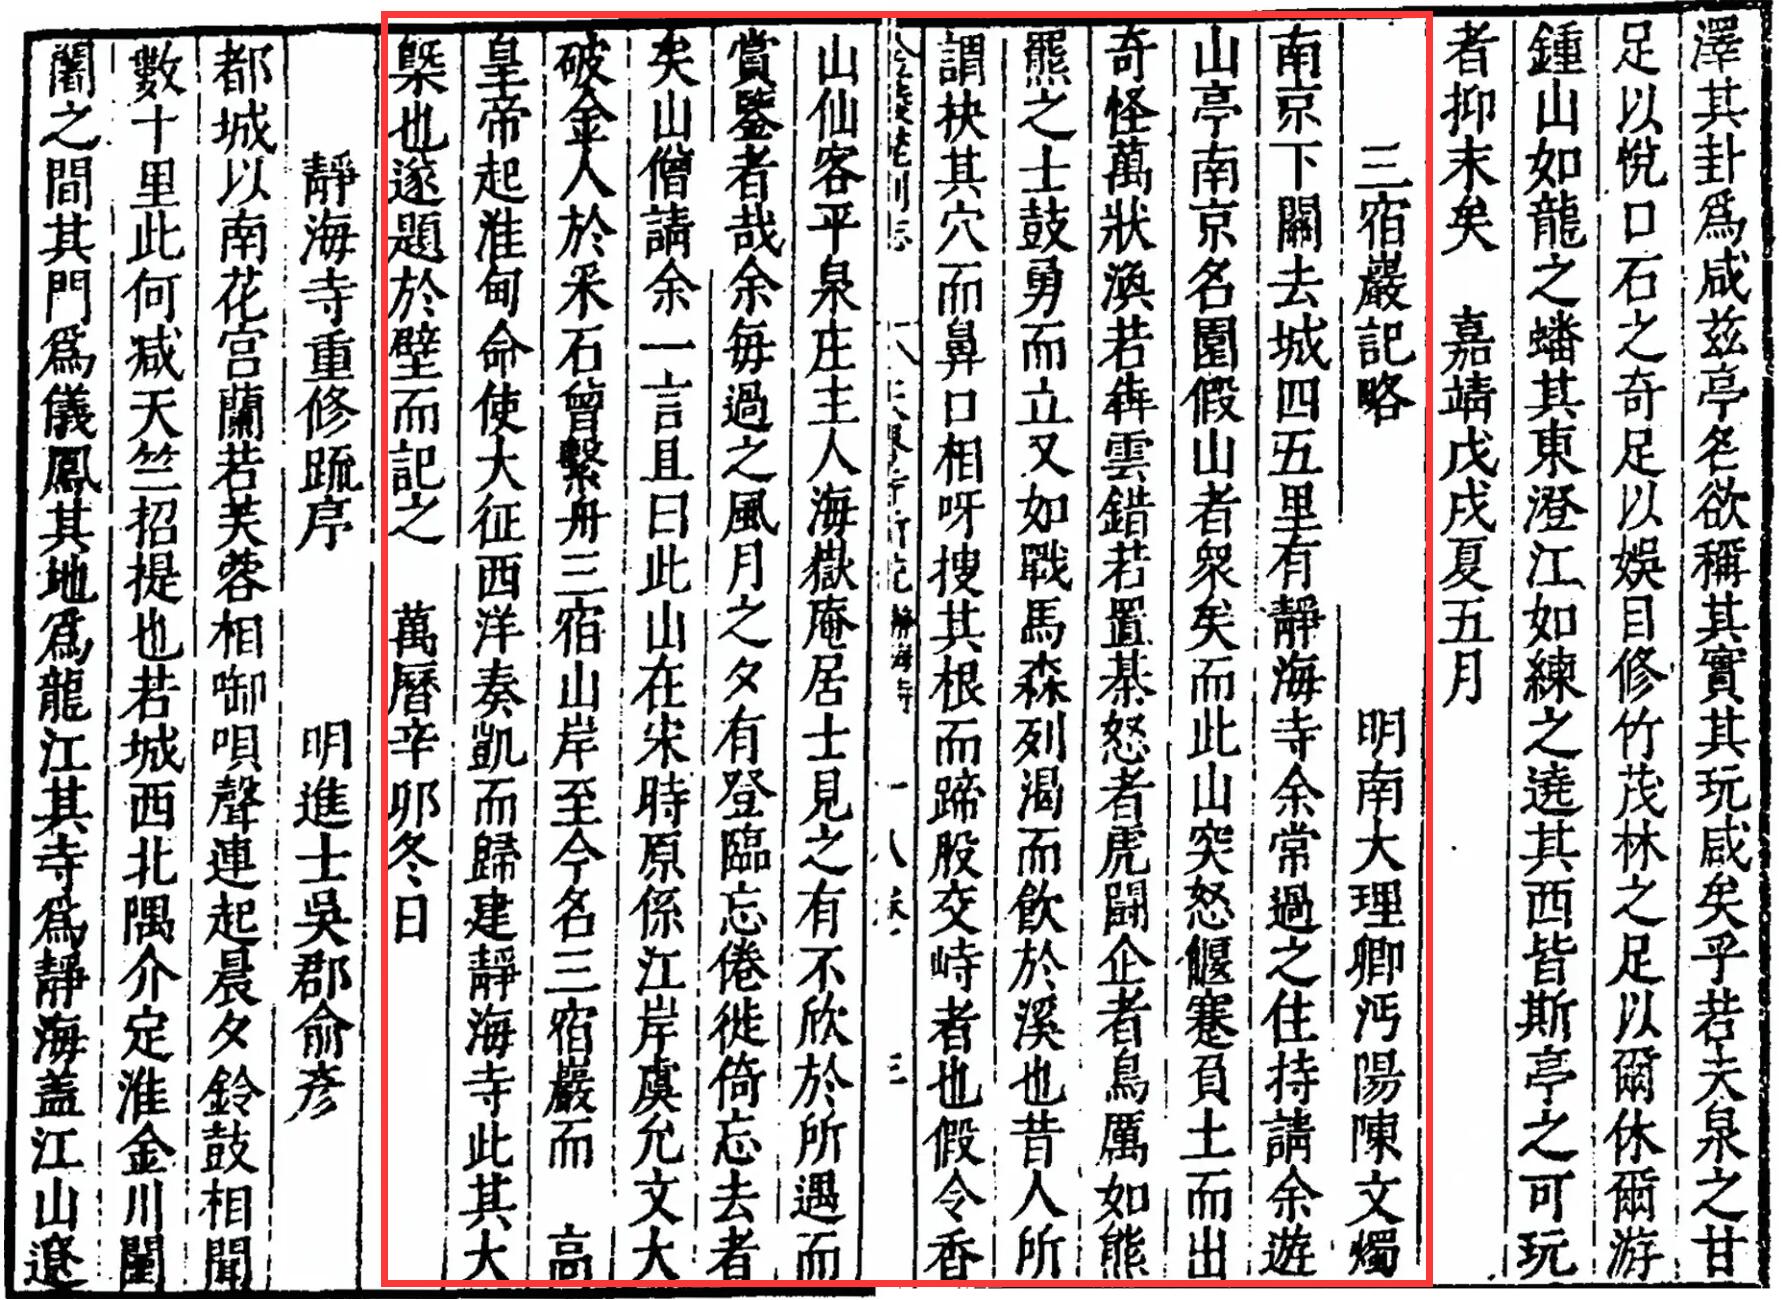 澤其卦爲咸茲亭名欲稱其實其玩咸矣乎若夫泉之甘
足以悅口石之奇足以娛目修竹茂林之足以爾休爾游
鍾山如龍之蟠其東澄江如練之遶其西皆斯亭之可玩
者抑末矣　嘉靖戊戌夏五月
三宿巖記略　明南大理卿沔陽陳文燭
南京下關去城四五里有靜海寺余常過之住持請余遊
山亭南京名園假山者衆矣而此山突怒偃蹇負土而出
奇怪萬狀渙若犇雲錯若置棊怒者虎鬪企者鳥厲如熊
羆之士鼓勇而立又如戰馬森列渴而飲於溪也昔人所
謂抉其穴而鼻口相呀搜其根而蹄股交峙者也假令香
金陵梵刹志　十八　靜海寺　三
山仙客平泉庄主人海嶽庵居士見之有不欣於所遇而
賞鑒者哉余每過之風月之夕有登臨忘倦徙倚忘去者
矣山僧請余一言且曰此山在宋時原係江岸虞允文大
破金人於釆石曾繫舟三宿山岸至今名三宿巖而　高
皇帝起淮甸命使大征西洋奏凱而歸建靜海寺此其大
槩也遂題於壁而記之　萬曆辛卯冬日
靜海寺重修疏序　明進士吳郡俞彥
都城以南花宮蘭若芙蓉相啣唄聲連起晨夕鈴鼓相聞
數十里此何减天竺招提也若城西北隅介定淮金川闉
闍之間其門爲儀鳳其地爲龍江其寺爲靜海盖江山遼